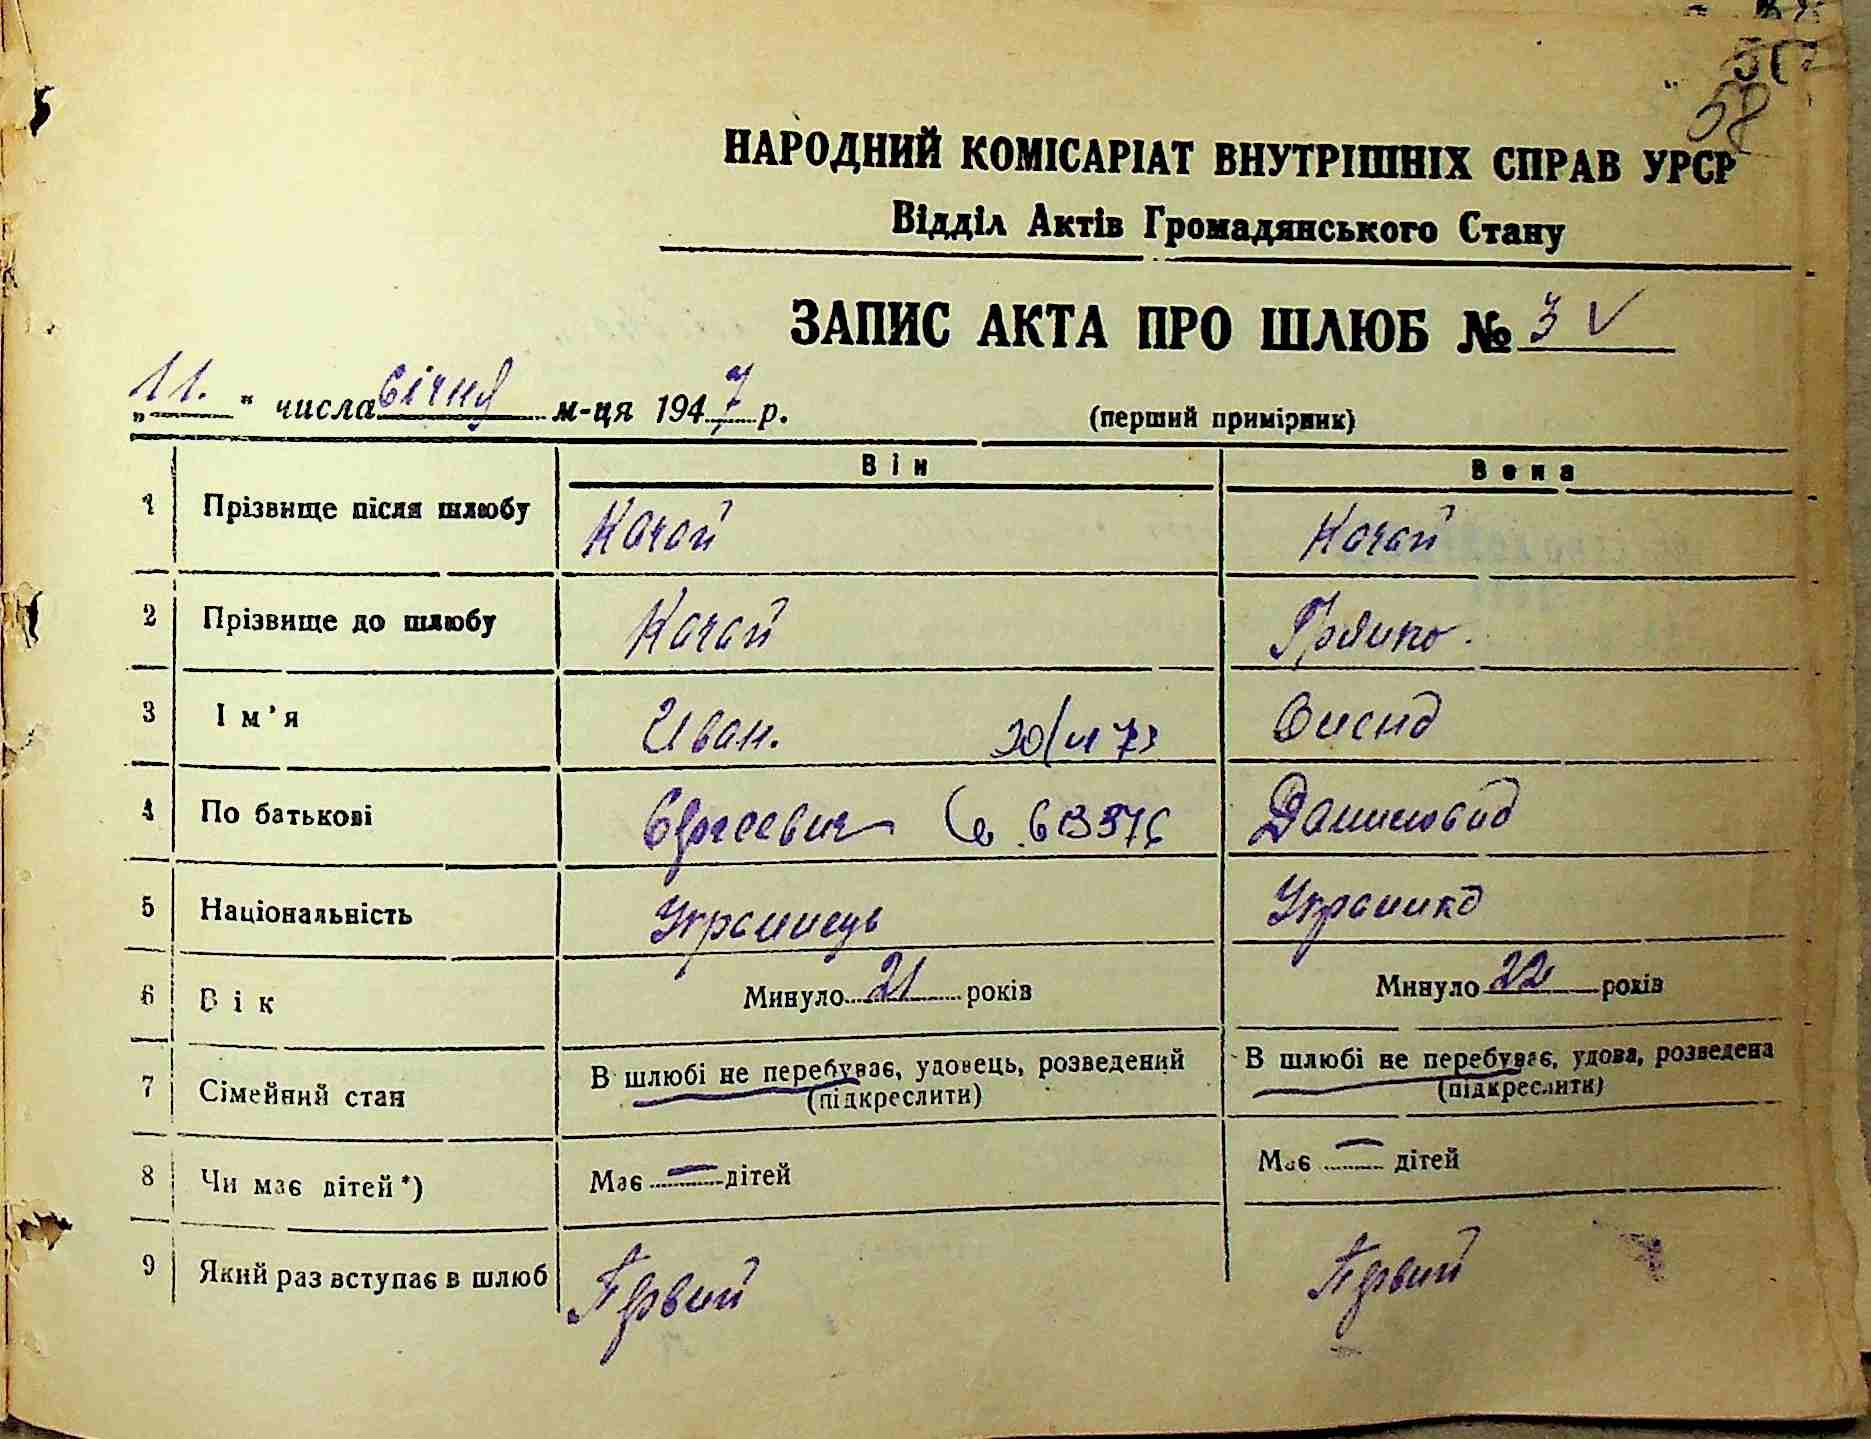 58
НАРОДНИЙ КОМІСАРІАТ ВНУТРІШНІХ СПРАВ УРСР
Відділ Актів Громадянського Стану
ЗАПИС АКТА ПРО ШЛЮБ № 3 V
„11." числа січня м-ця 1947 р. (перший примірник)
Він Вона
1 Прізвище після шлюбу Качай Качай
2 Прізвище до шлюбу Качай
3 Ім'я Иван.
4 По батькові Сергеевич Даниловна
5 Національність Украинець Украинка
6 Вік Минуло 21 років Минуло 22 років
7 Сімейний стан В шлюбі не перебуває, удовець, розведений В шлюбі не перебуває, удова, розведена
(підкреслити) (підкреслити)
8 Чи має дітей*) Має — дітей Має — дітей
9 Який раз вступає в шлюб Первий Первий